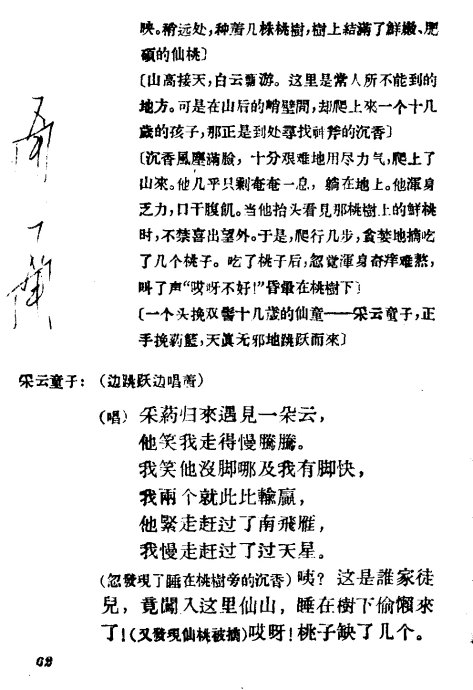 映。稍远处,种着几株桃樹,樹上結滿了鮮嫩、肥
碩的仙桃〕
〔山高接天,白云翻游。这里是常人所不能到的
地方。可是在山后的峭壁間,却爬上來一个十几
歲的孩子,那正是到处尋找神斧的沉香〕
〔沉香風塵滿臉,十分艰难地用尽力气,爬上了
山來。他几乎只剩奄奄一息,躺在地上。他渾身
乏力,口干腹飢。当他抬头看見那桃樹上的鮮桃
时,不禁喜出望外。于是,爬行几步,貪婪地摘吃
了几个桃子。吃了桃子后,忽覚渾身奇痒难熬,
叫了声“哎呀不好!”昏暈在桃樹下〕
〔一个头挽双髻十几歲的仙童——采云童子,正
手挽葯籃,天眞无邪地跳跃而來〕
采云童子:(边跳跃边唱着)
(唱)采葯归來遇見一朵云,
他笑我走得慢騰騰。
我笑他沒脚哪及我有脚快,
我兩个就此比輸贏,
他緊走赶过了南飛雁,
我慢走赶过了过天星。
(忽發現了睡在桃樹旁的沉香)咦?这是誰家徒
兒,竟闖入这里仙山,睡在樹下偷懶來
了!(又發現仙桃被摘)哎呀!桃子缺了几个。
62